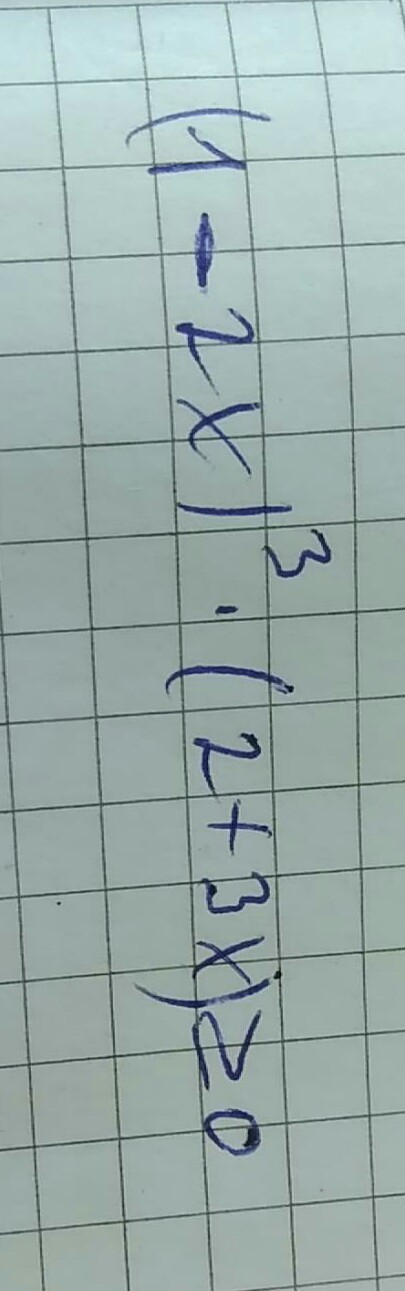 (1 - 2x)³ · (2 + 3x) ≥ 0